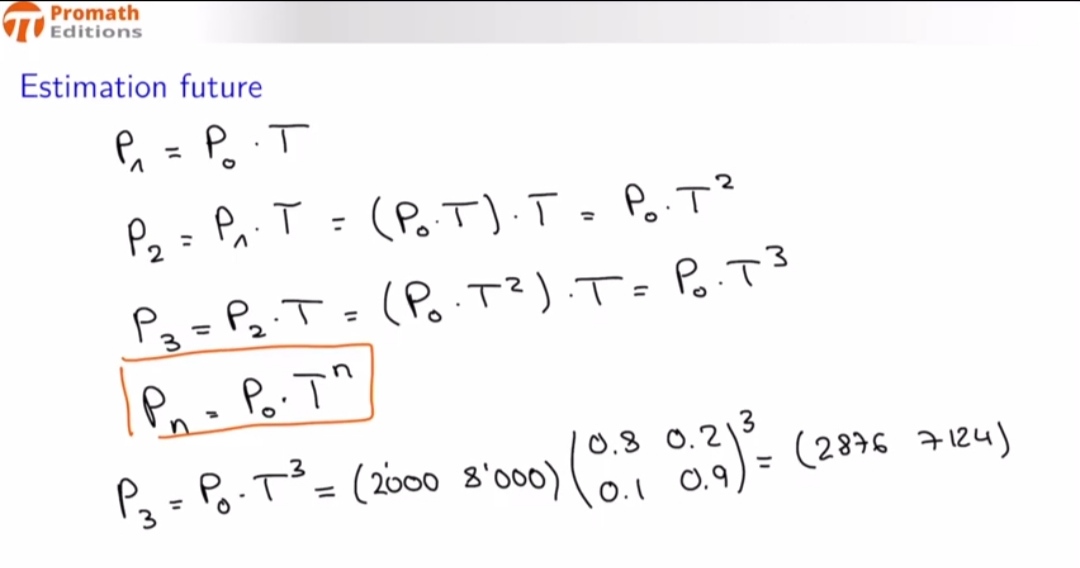 Promath
Editions
Estimation future
P₁ = P₀ · T
P₂ = P₁ · T = (P₀ · T) · T = P₀ · T²
P₃ = P₂ · T = (P₀ · T²) · T = P₀ · T³
Pₙ = P₀ · Tⁿ
P₃ = P₀ · T³ = (2'000 8'000) (0.8 0.2 / 0.1 0.9)³ = (2876 7124)